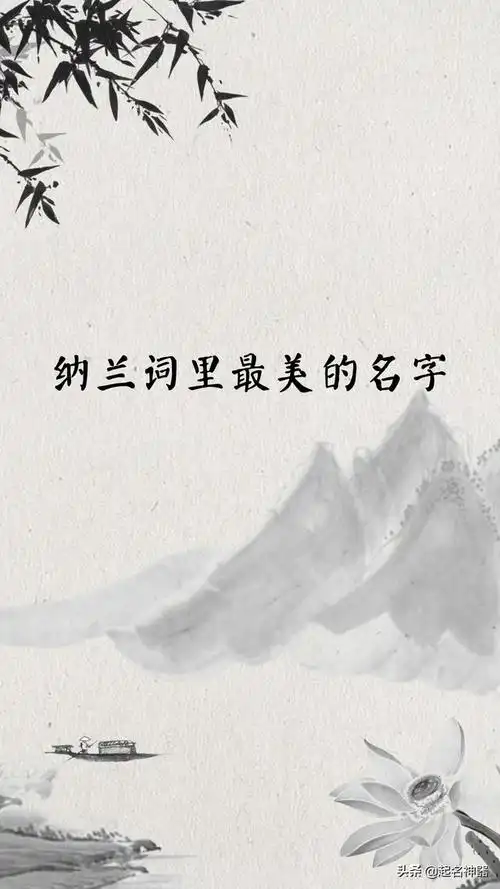 纳兰词里最美的名字
头条 @起名神器